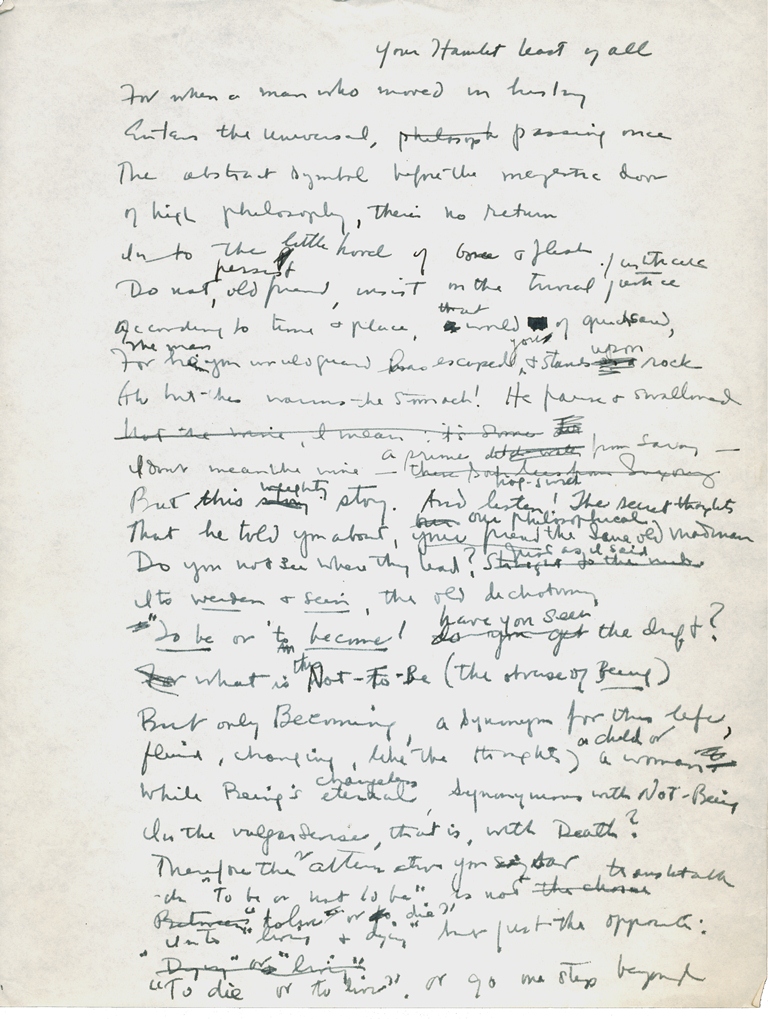 your Hamlet least of all
For when a man who moved in history
Enters the universal, philosoph passing once
The abstract symbol before the majestic door
of high philosophy, there's no return
In to the little hovel of bone & flesh.
persist
Do not, old friend, insist on the trivial justice
According to time & place, that world of quicksand,
the man
For him you would guard has escaped, & stands upon rock
Ah but this warms the stomach! He pause & swallowed
Not the wine, I mean: it's some
a prime from Savoy —
I don't mean the wine —
hog-sired
But this weighty story. And listen! The secret thoughts
our philosophical
That he told you about, your friend the sane old madman
just as I said
Do you not see where they lead? Straight to the
Its werden & sein, the old dichotomy,
have you seen
"To be or to become! do you get the draft?
For what is the Not-To-Be (the obverse of Being)
But only Becoming, a synonym for this life,
a child or
fluid, changing, like the thoughts of a woman
changeless
While Being's eternal, synonymous with Not-Being
In the vulgar sense, that is, with Death?
Therefore the alternative you say
in "To be or not to be" is not the choice
Between "to live" or to die"
"living & dying" but just the opposite:
"Dying" or "living"
"To die or to live", or go one step beyond